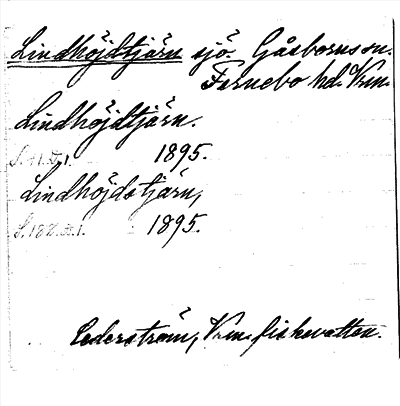 Lindhöjdtjärn sjö. Gåsbornssn.
Färnebo hd. Vrm.
Lindhöjdtjärn.
S. 41. I. 1. 1895.
Lindhöjdstjärn,
S. 182. I. 1. 1895.
Cederström, Vrm. fiskevatten.